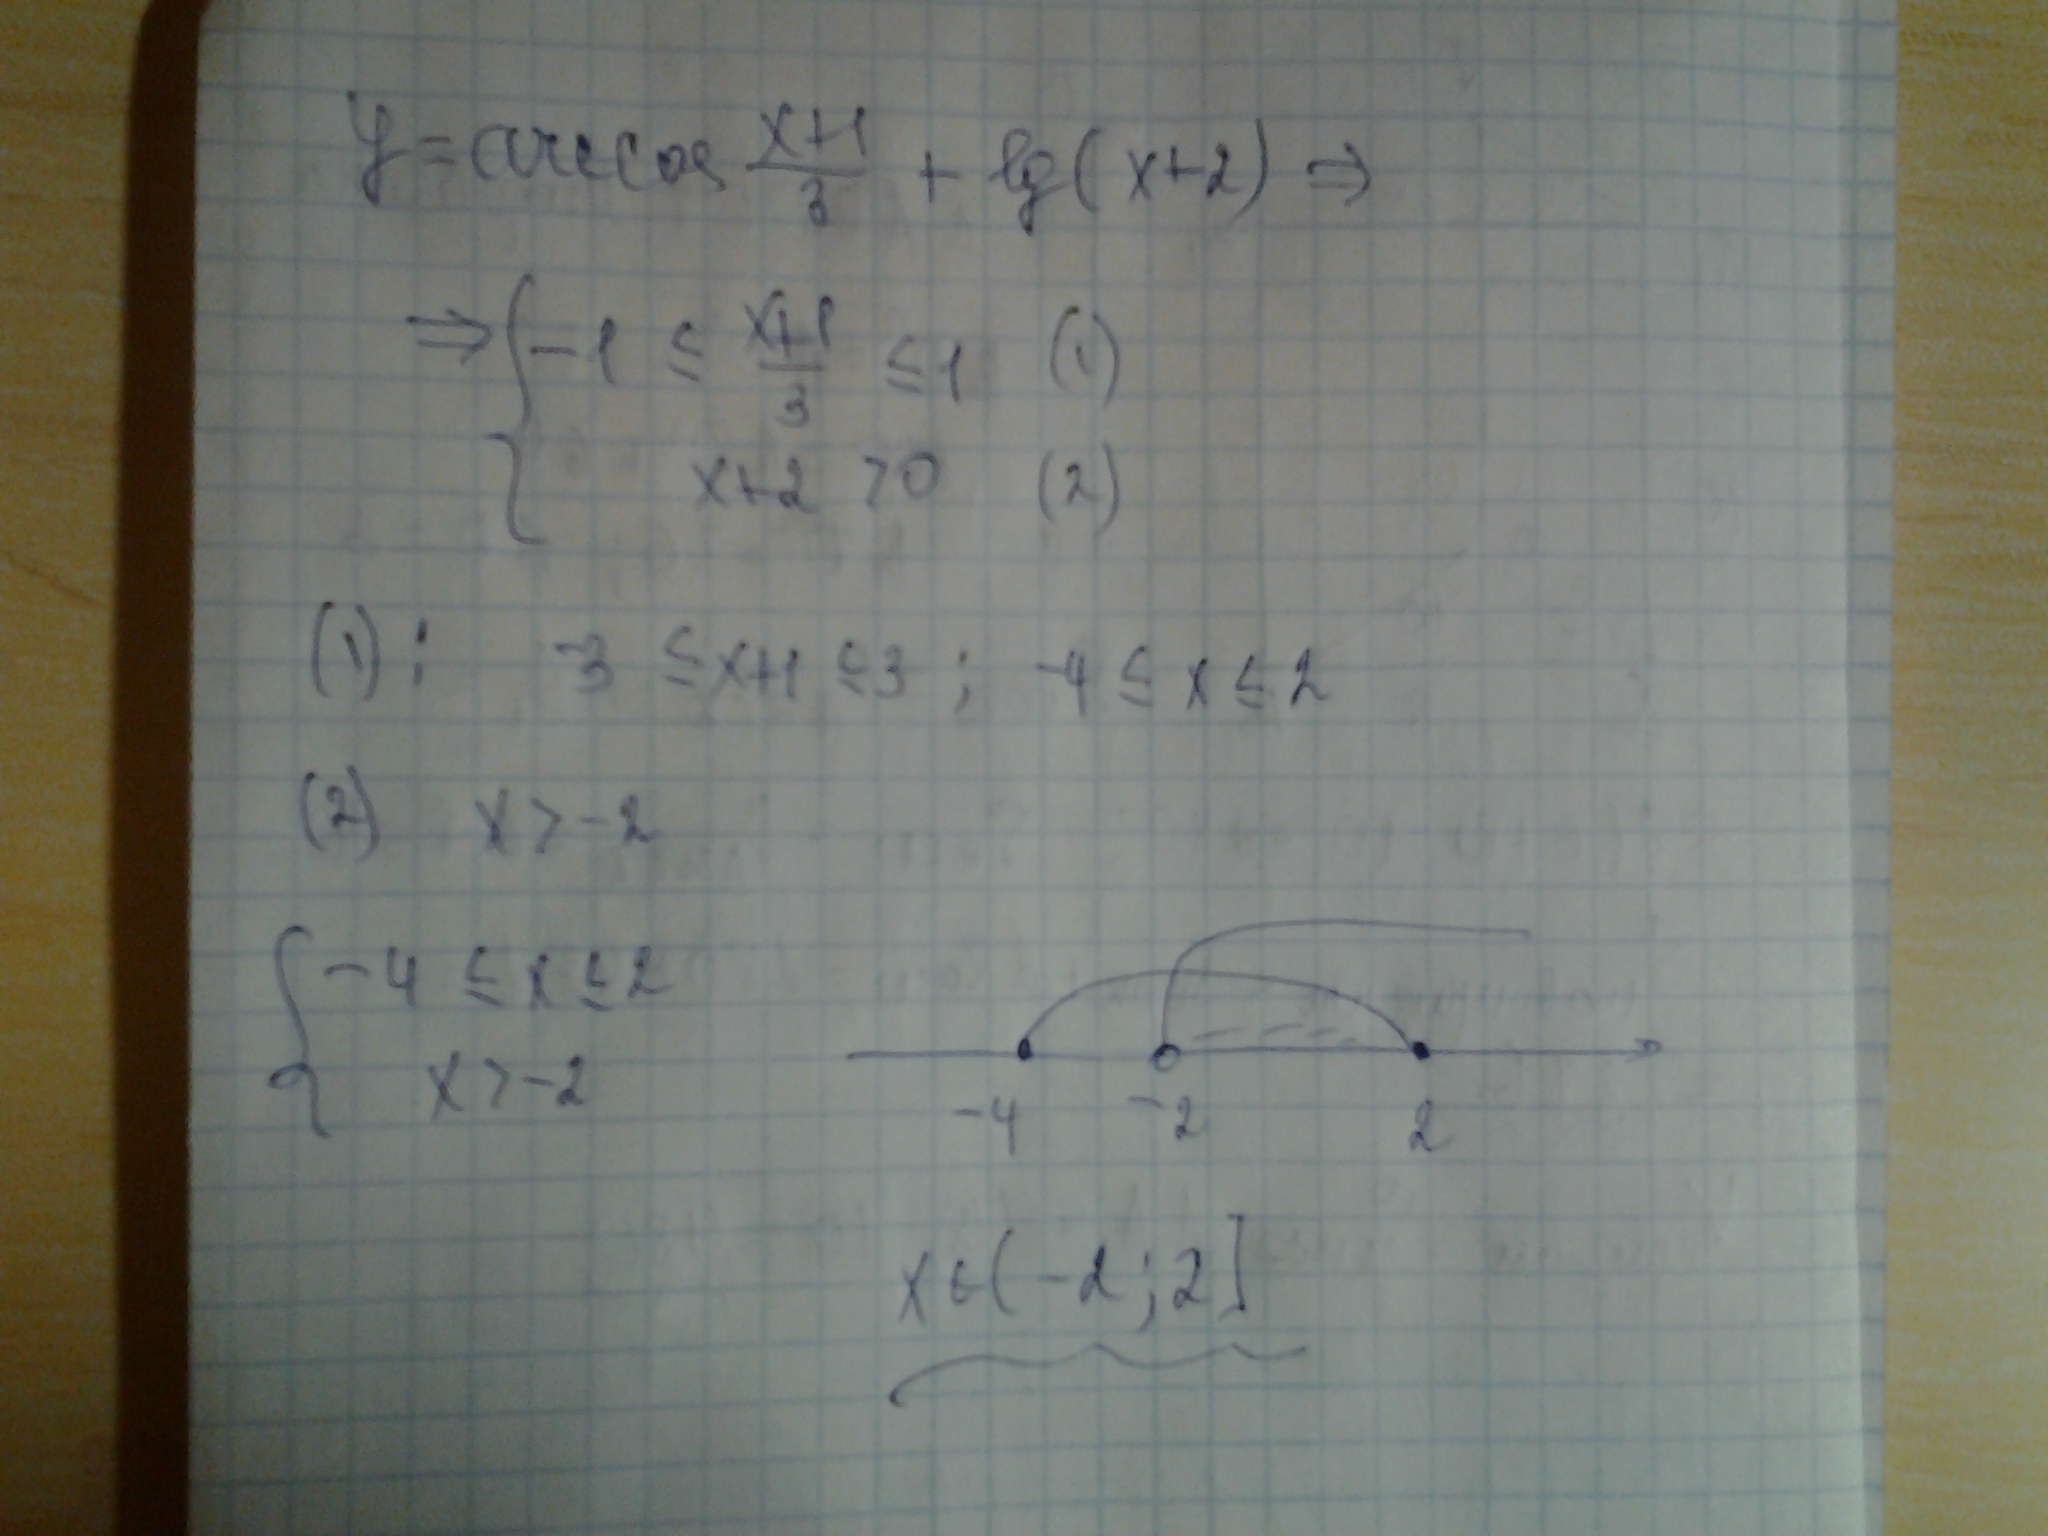 y = arccos (x+1)/3 + lg(x+2) ⇒
⇒ { -1 ≤ (x+1)/3 ≤ 1 (1)
x+2 > 0 (2)
(1): -3 ≤ x+1 ≤ 3 ; -4 ≤ x ≤ 2
(2) x > -2
{ -4 ≤ x ≤ 2
x > -2
-4 -2 2
x ∈ (-2; 2]